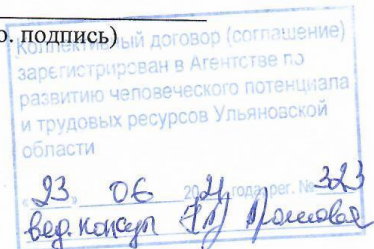 о. подпись)
Коллективный договор (соглашение)
зарегистрирован в Агентстве по
развитию человеческого потенциала
и трудовых ресурсов Ульяновской
области
«23» 06 2021 года, рег. № 323
вед. консул